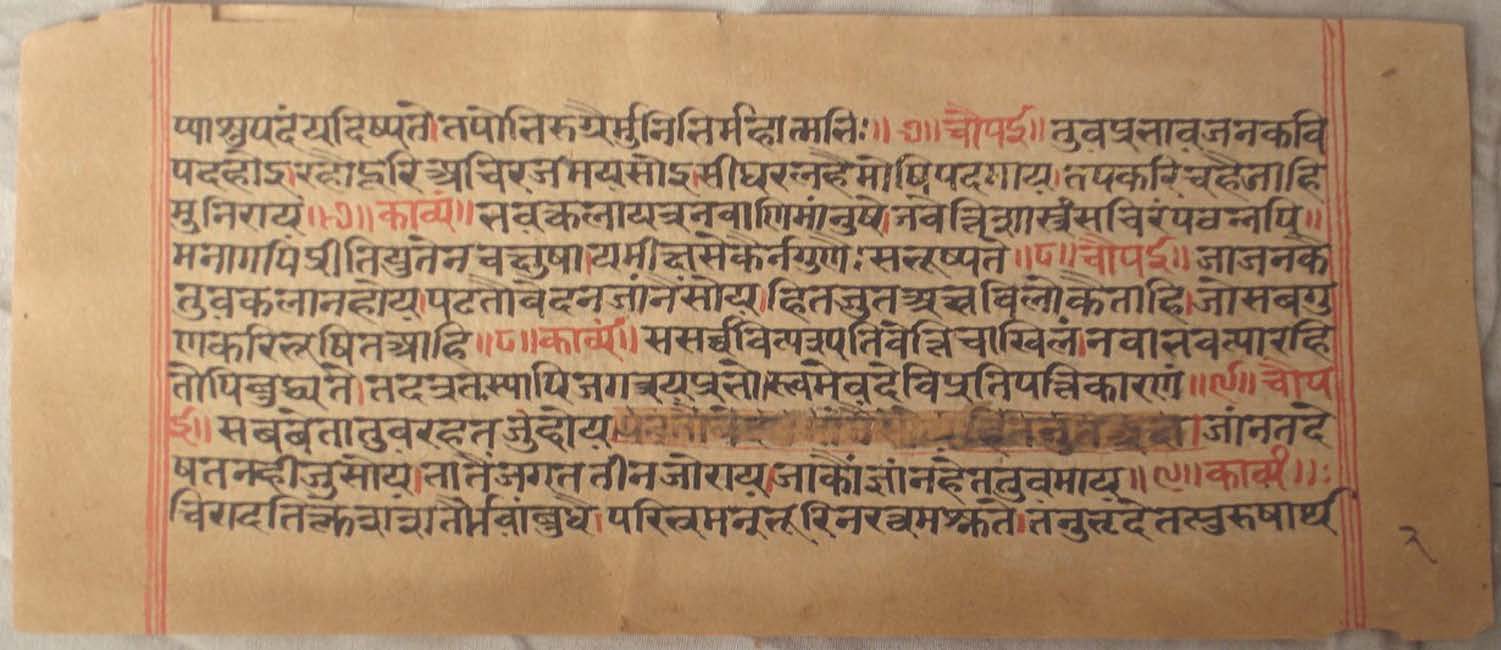 प्याश्रुपदंयदिष्पते।तपोतिरुग्रैर्मुनितिर्महात्मतिः॥७॥चौपई॥तुवप्रतावजनकवि
पदहोइ।रहौदूरिअचिरजमयसोइ।सीघरलहैमोषिपदताय।तपकरिचहैजाहि
मुनिराय॥७॥काव्यं॥तवत्कलायत्रनवाणिमांनुषे।नवेत्तिशास्त्रंसचिरंपठन्नपि॥
मनागपिप्रीतियुतेनचक्षुषा।यमीक्षसेकैर्नगुणैःसतूष्पते॥८॥चौपई॥जाजनकै
तुवकलानहोय।पटतौवेदनजांनैंसोय।हितजुतअच्चविलोकैताहि।जोसबगु
णकरितूषितआहि॥८॥काव्यं॥ससर्व्ववित्पत्रपतिवेत्तिचाखिलं।नवातवत्पारहि
तोपिबुध्यते।तदत्रतस्पापिजगत्रयप्रतो।स्त्वमेवदेविप्रतिपत्तिकारणं॥९॥चौप
ई॥सबबेतातुवरहतजुहोय।जांनतदे
षतनहीजुसोय।तातैंजगततीनजोराय।जाकौंज्ञांनहेततुवमाय॥९॥काव्यं॥
चिरादतिक्लेशशतैर्भवांबुधै।परित्रमनूतूरिनरत्वमश्नुते।तनुतृदेतत्पुरुषार्थ
२